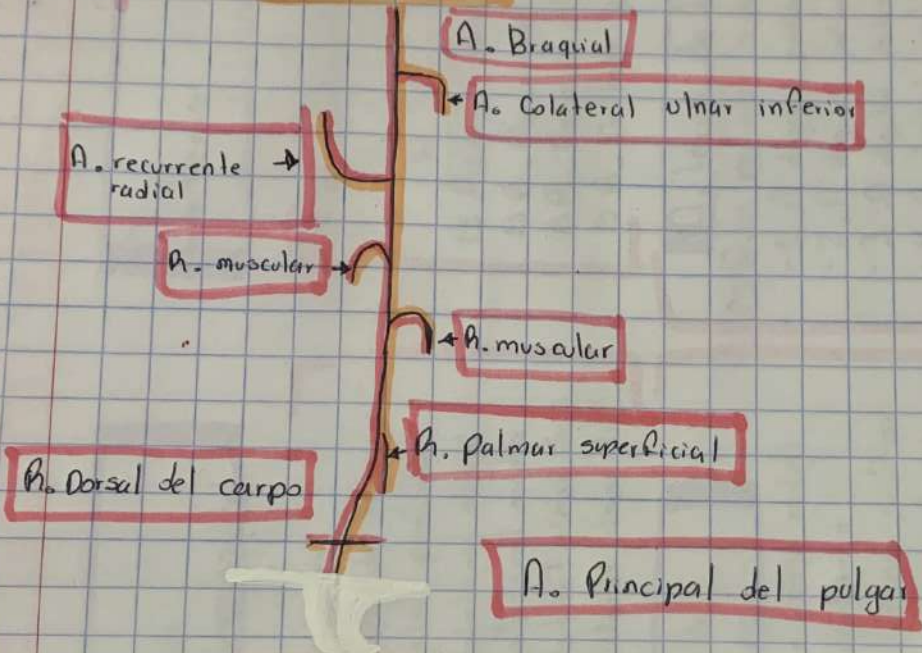 A. Braquial
A. Colateral ulnar inferior
A. recurrente
radial
R. muscular
R. muscular
R. Palmar superficial
R. Dorsal del carpo
A. Principal del pulgar